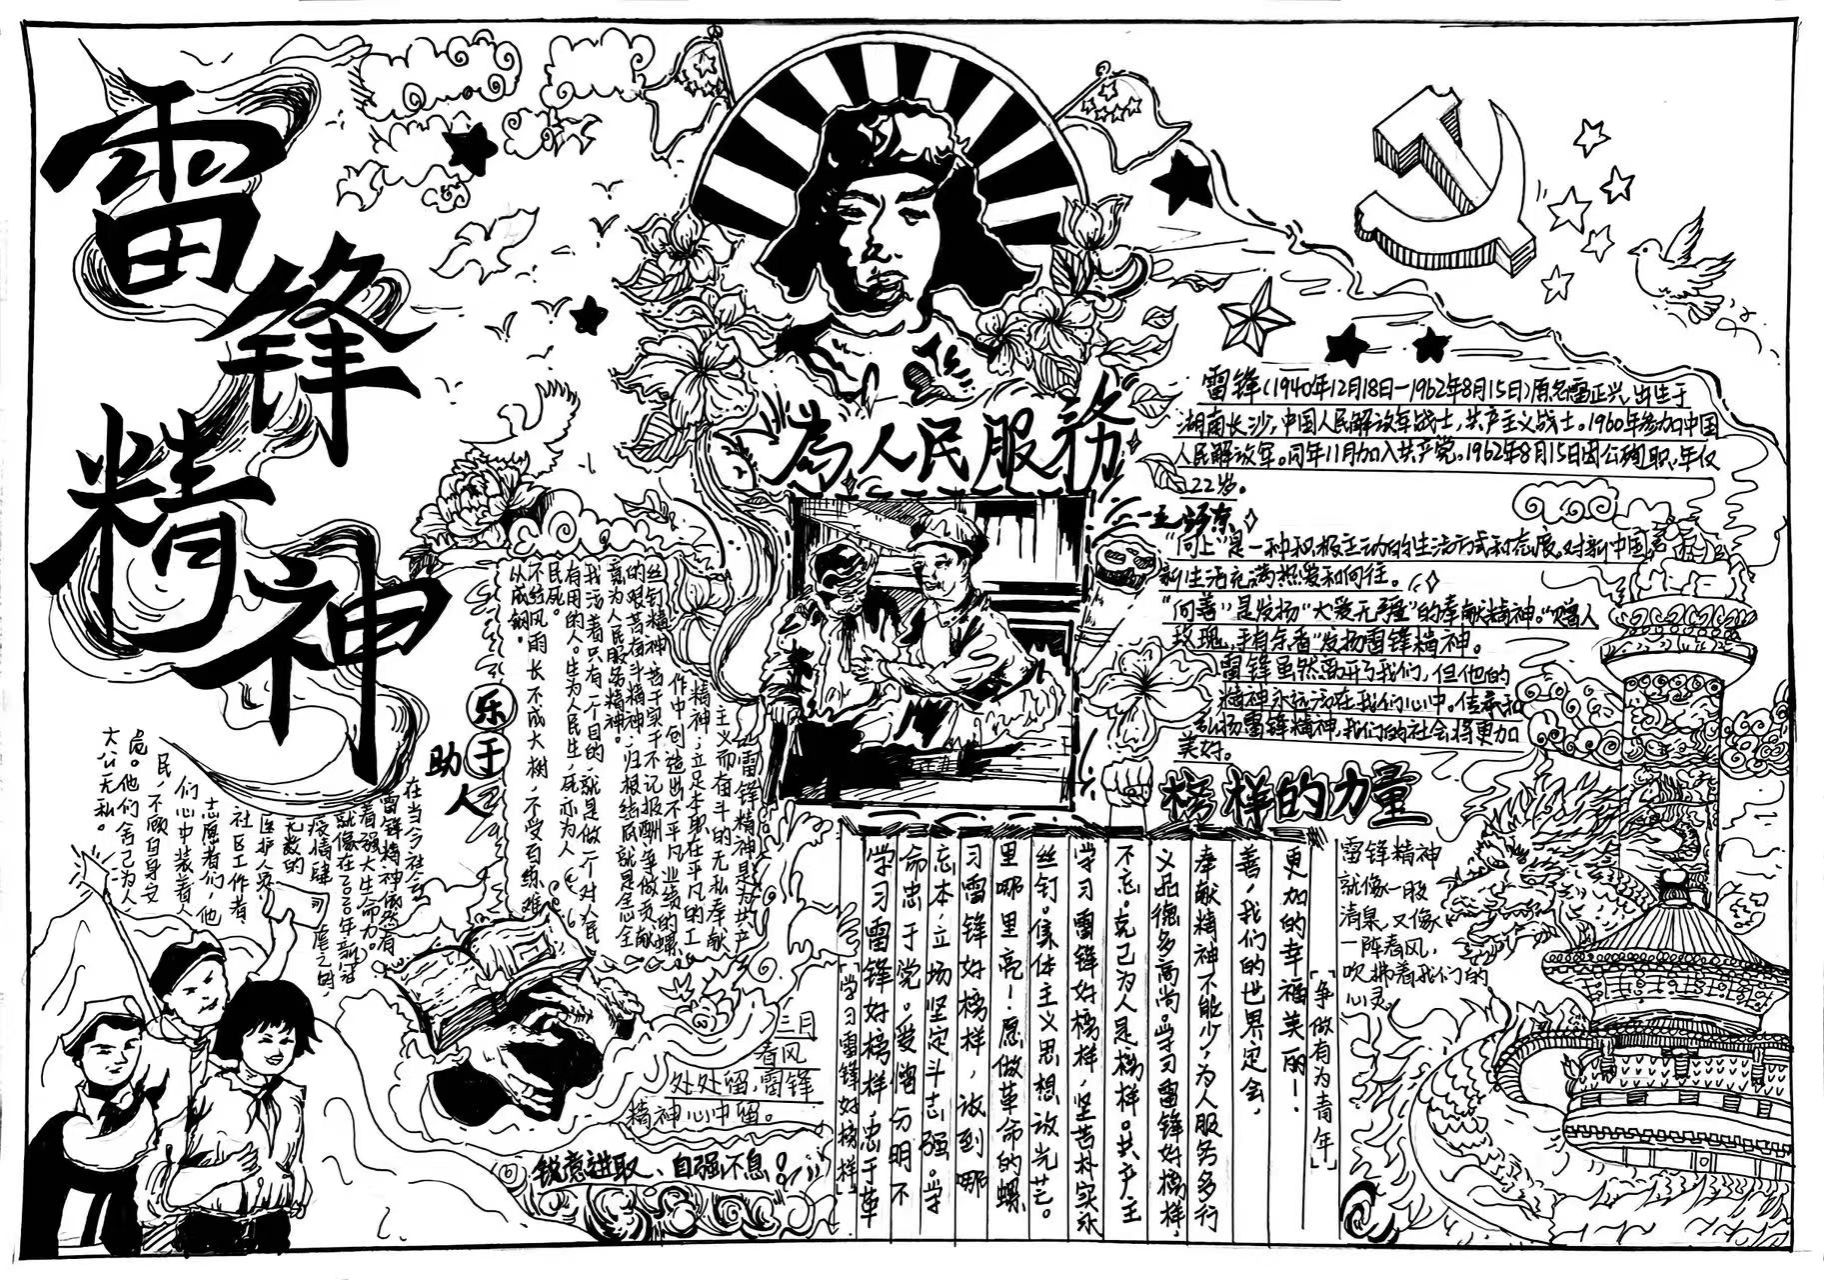 雷
锋
精
神
为人民服務
—毛泽东
雷锋(1940年12月18日—1962年8月15日)原名雷正兴,出生于
湖南长沙,中国人民解放军战士,共产主义战士。1960年参加中国
人民解放军。同年11月加入共产党。1962年8月15日因公殉职,年仅
22岁。
"向上"是一种积极主动的生活方式和态度,对新中国
新生活充满热爱和向往。
"向善"是发扬"大爱无疆"的奉献精神。"赠人
玫瑰,手有余香"发扬雷锋精神。
雷锋虽然离开了我们,但他的
精神永远活在我们心中。传承和
弘扬雷锋精神,我们的社会将更加
美好。
榜样的力量
雷锋精神
就像一股
清泉,又像
一阵春风,
吹拂着我们的
心灵。
「争做有为青年」
「学习雷锋好榜样」
学习雷锋好榜样,忠于革
命忠于党。爱憎分明不
忘本,立场坚定斗志强。学
习雷锋好榜样,放到哪
里哪里亮!愿做革命的螺
丝钉。集体主义思想放光芒。
学习雷锋好榜样,坚苦朴实永
不忘。克己为人是榜样。共产主
义品德多高尚。学习雷锋好榜样,
奉献精神不能少,为人服务多行
善,我们的世界定会,
更加的幸福美丽!
乐于
助人
雷锋精神是为共产
主义而奋斗的无私奉献
精神;立足本职在平凡的工
作中创造出不平凡业绩的螺
丝钉精神;苦干实干不计报酬争做贡献
的艰苦奋斗精神,归根结底就是全心全
意为人民服务精神。
我活着只有一个目的,就是做一个对人民
有用的人。生为人民生,死亦为人
民死。
不经风雨长不成大树,不受百练难
以成钢。
在当今社会
雷锋精神依然有
着强大生命力。
就像在2020年新冠
疫情肆
虐之时,
无数的
医护人员,
社区工作者,
志愿者们,他
们心中装着人
民,不顾自身安
危。他们舍己为人,
大公无私。
三月
春风
处处留,雷锋
精神心中留。
锐意进取、自强不息!